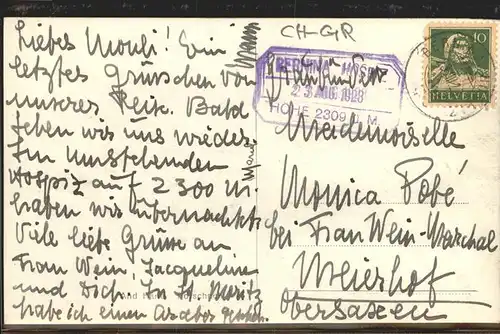 CH-GR
Liebes Mouli! Ein
letztes Grüsschen von
unserer Reise. Bald
sehen wir uns wieder.
Im umstehenden
Hospiz auf 2300 m.
haben wir übernachtet.
Viele liebe Grüsse an
Frau Wein, Jacqueline
und Doch. In St. Moritz
habe ich einen
BERNINA HOSPIZ
23. AUG. 1928
HÖHE 2309 M.
Graubünden
10
HELVETIA
Mademoiselle
Monica Bobé
bei Frau Wein-Marchal
Meierhof
Obersaxen